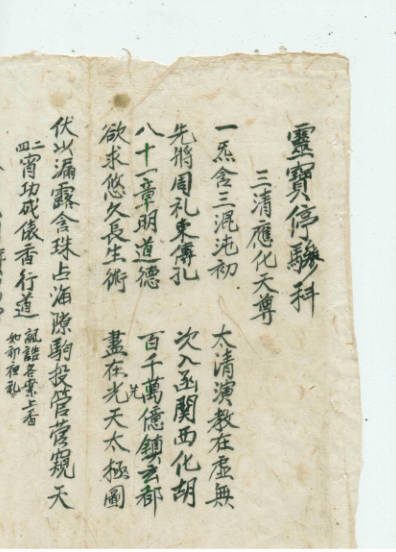 靈寶停驂科
三清應化天尊
一炁含三混沌初 太清演教在虛無
先將周礼東傳孔 次入函関西化胡
八十一章明道德 百千萬億鎮玄都
兆
欲求悠久長生術 盡在光天太極圖
伏以漏露含珠占海隙駒投管窺天
二四宵功成香行道 誥各案上香
如前礼